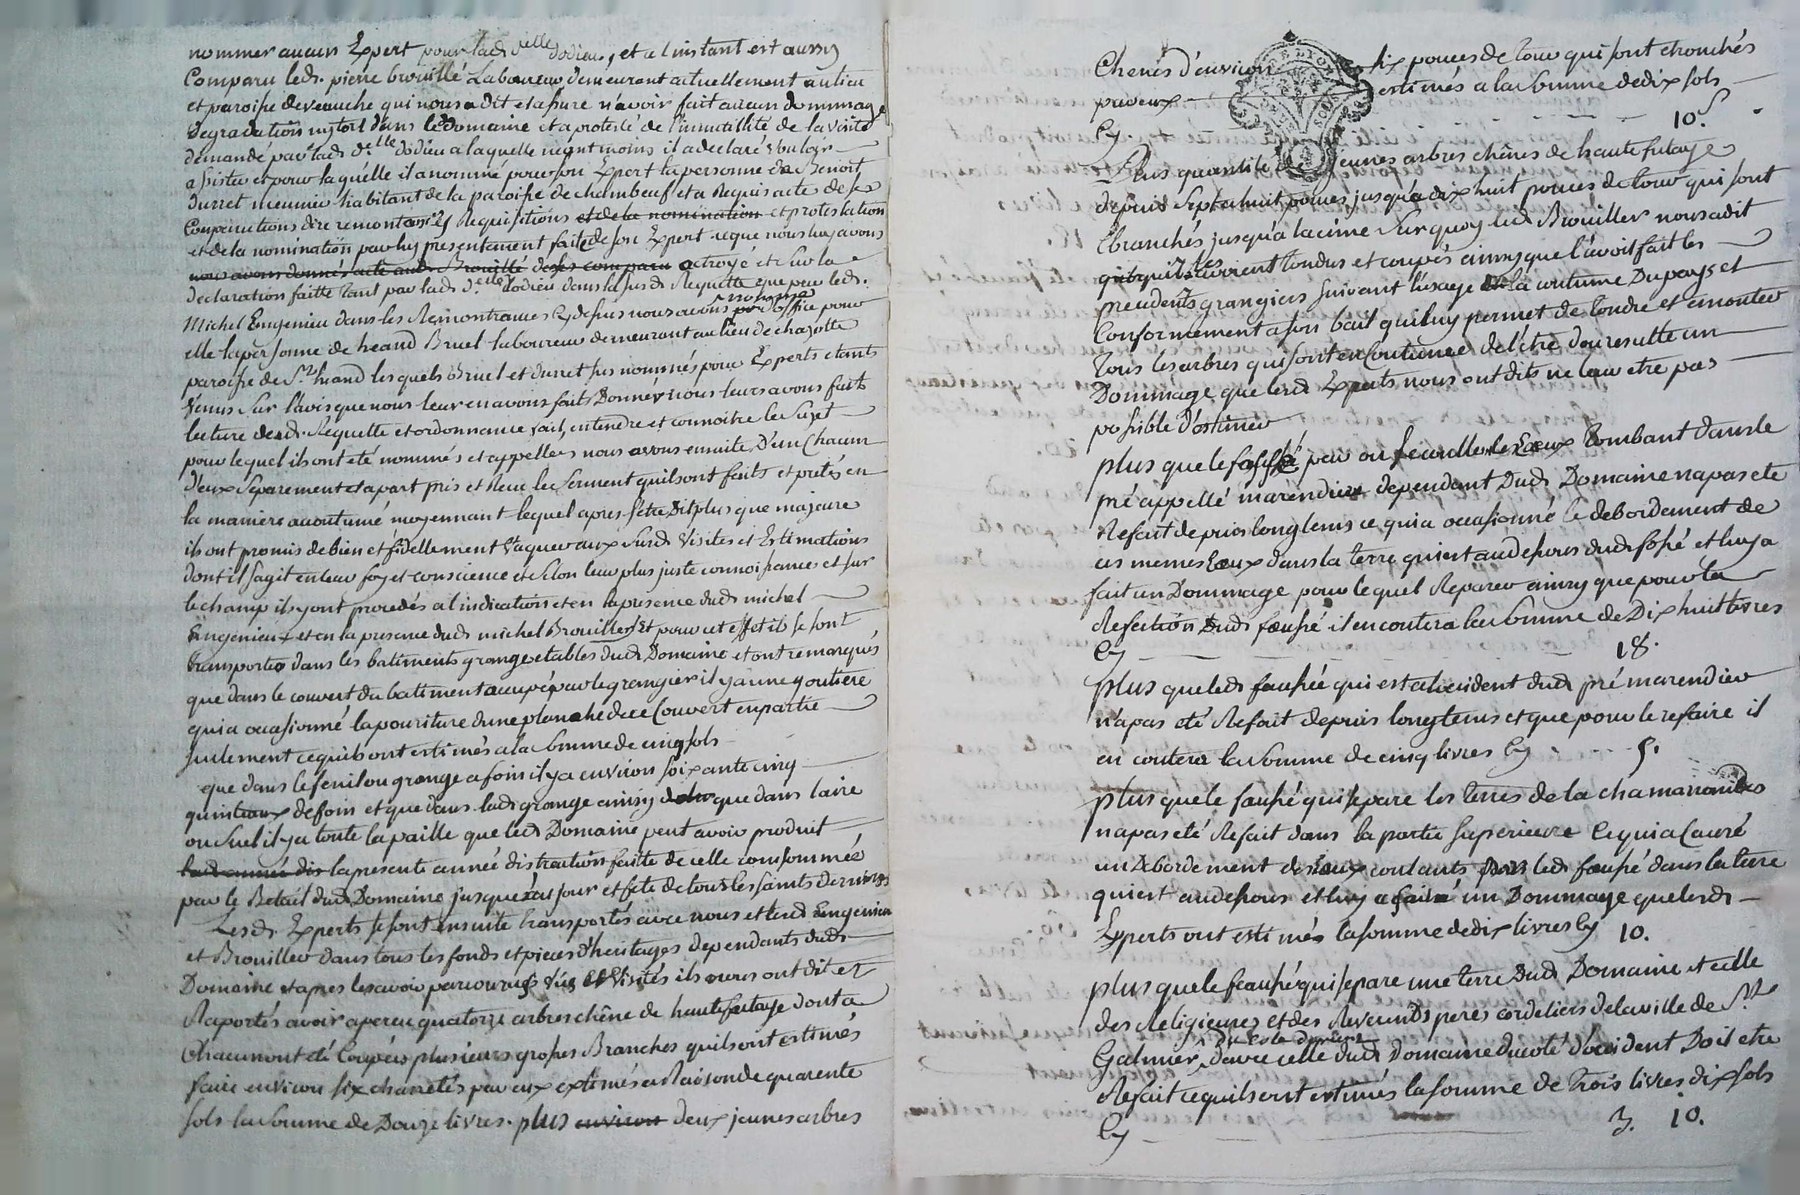 nommer aucun Expert pour lad. dlle dodieu, et a l'instant est aussy
Comparu led. pierre brouillé Laboureur demeurant actuellement au lieu
et paroisse de veauche qui nous a dit et assuré n'avoir fait aucun dommage
degradation ny tort dans le domaine et a protesté de l'innutillité de la visite
demandé par lad. dlle dodieu a laquelle neantmoins il a declaré vouloir
assister et pour laquélle il a nommé pour son Expert la personne de Benoit
durret meunier habitant de la paroisse de chambeuf et a Requis acte de sa
Comparutions dire remontances Requisitions et de la nomination et protestation
et de la nomination par luy presentement faite de son Expert ce que nous luy avons
nous avons donnés acte aud. Brouillé de ses comparu octroyé et sur la
declaration faitte tant par lad. dlle dodieu dans la susd. Requette que par led.
Michel Engenieu dans les Remontrances Cy dessus nous avons nommé d'office pour
elle la personne de heand Bruel laboureur demeurant au lieu de chazotte
paroisse de St. heand lesquels Bruel et durret sus nommés pour Experts etants
venus sur l'avis que nous leur en avons fait Donner nous leurs avons faits
lecture desd. Requette et ordonnance fait, entendre et connoitre le sujet
pour lequel ils ont été nommés et appelles nous avons ensuite D'un Chacun
d'eux separement et apart pris et Reçu le serment quils ont faits et pretés en
la maniere accoutumé moyennant lequel apres s'etre Dit plus que majeure
ils ont promis de bien et fidellement Vaquer aux susd. Visites et Estimations
dont il s'agit en leur foy et conscience et selon leur plus juste connoissances et sur
le champ ils y ont procedés a l'indication et en la presence dud. michel
Engenieux et en la presence dud. michel Brouiller Et pour cet effet ils se sont
transportés dans les batiments grange etables dud. Domaine et ont remarqués
que dans le couvert du batiment occupé par le grangier il y a une goutiere
qui a occasionné la pouriture dune planche dece Couvert en partie
seulement ce quils ont estimés a la somme de cinq sols
que dans le fenil ou grange a foin il y a environ soixante cinq
quintaux de foin et que dans lad. grange ainsy que dans laire
ou suel il y a toute la paille que led. Domaine peut avoir produit
lad. année dis la presente année distraction faitte de celle consommée
par le Betail dud. Domaine jusques au jour et fete de tous les saints derniers
Lesd. Experts se sont ensuite transportés avec nous et lesd. Engenieu
et Brouiller dans tous les fonds et pieces d'heritages dependants dud.
Domaine et apres les avoir parcourus vus et Visités ils nous ont dit et
Raportés avoir aperçu quatorze arbres chêne de haute futaye dont a
Chacun ont été Coupées plusieurs grosses Branches quils ont estimés
faire environ six charetés par eux estimés a Raison de quarente
sols la somme de Douze livres. plus environ deux jeunes arbres
Chenes d'environ six pouces de tour qui sont etronchés
par eux estimés a la somme de dix sols
Cy 10.s
Plus quantité de jeunes arbres chênes de haute futaye
depuis sept a huit pouces jusqu'a dix huit pouces de tour qui sont
Ebranchés jusqu'a la cime sur quoy led. Brouiller nous a dit
qu'quil les avoient tondus et coupés ainsy que l'avoit fait les
precedents grangiers suivant l'usage de la coutume Du pays et
Conformement a son bail qui luy permet de tondre et emonder
Tous les arbres qui sont en Coutumee de l'être dou resulte un
Dommage que lesd. Experts nous ont dits ne leur etre pas
possible d'estimer
plus que le fossé par ou se écoulle les Eaux tombant dans le
pré appellé marendier dependant Dud. Domaine na pas été
Refait depuis longtems ce qui a occasionné le debordement de
ces mêmes Eaux dans la terre qui est au dessous dud. fossé et luy a
fait un Dommage pour lequel Reparer ainsy que pour la
Refection Dud. faussé il en coutera la somme de Dix huit livres
Cy 18.
plus que led. faussée qui est a locident dud. pré marendier
n'a pas été Refait depuis longtems et que pour le refaire il
en coutera la somme de cinq livres Cy 5.
plus que le faussé qui separe les terres de la
na pas été Refait dans la partie superieure Ce qui a Causé
un Debordement des Eaux coulants dans led. faussé dans la terre
qui est au dessous et luy a fait un Dommage que lesd.
Experts ont estimés la somme de dix livres Cy 10.
plus que le faussé qui separe une terre Dud. Domaine et celle
des Religieuses et des Reverends peres cordeliers de la ville de St.
Galmier, d'avec celle dud. Domaine du coté d'occident Doit etre
Refait ce quils ont estimés la somme de trois livres dix sols
Cy 3. 10.